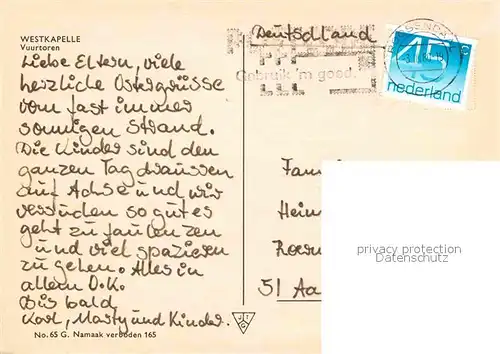 WESTKAPELLE
Vuurtoren
Liebe Eltern, viele
herzliche Ostergrüsse
vom fast immer
sonnigen Strand.
Die Kinder sind den
ganzen Tag draussen
auf Achse und wir
versuchen so gut es
geht zu faulenzen
und viel spazieren
zu gehen. Alles in
allem O.K.
Bis bald
Karl, Marty und Kinder.
No. 65 G. Namaak verboden 165
JTG
Deutschland
Gebruik 'm goed.
45 c
nederland
Fami
Hein
51 Aa
privacy protection
Datenschutz